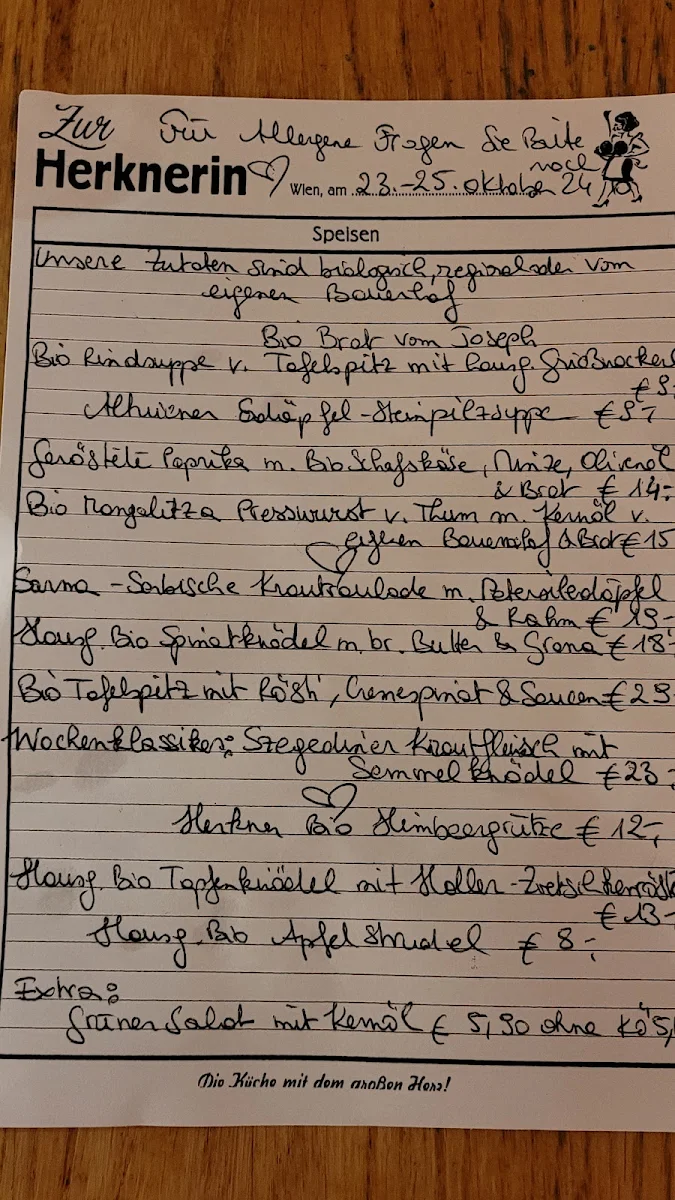 Zur Für Allergene Fragen Sie Bitte
noch
Herknerin Wien, am 23.-25. Oktober 24
Speisen
Unsere Zutaten sind biologisch, regional oder vom
eigenen Bauernhof
Bio Brot vom Joseph
Bio Rindsuppe v. Tafelspitz mit hausg. Grießnockerl
€ 9,-
Altwiener Erdäpfel-Steinpilzsuppe € 9,-
Geröstete Paprika m. Bio Schafskäse, Minze, Olivenöl
& Brot € 14,-
Bio Mangalitza Presswurst v. Thum m. Kernöl v.
eigenen Bauernhof & Brot € 15
Sarma - Serbische Krautroulade m. Petersilerdäpfel
& Rahm € 19,-
Hausg. Bio Spinatknödel m. br. Butter & Grana € 18,-
Bio Tafelspitz mit Rösti, Cremespinat & Saucen € 29
Wochenklassiker: Szegediner Krautfleisch mit
Semmelknödel € 23,-
Herkner Bio Himbeergrütze € 12,-
Hausg. Bio Topfenknödel mit Holler-Zwetschkenröst
€ 13,-
Hausg. Bio Apfelstrudel € 8,-
Extra:
Grüner Salat mit Kernöl € 5,90 ohne Kö 5,
Die Küche mit dem großen Herz!